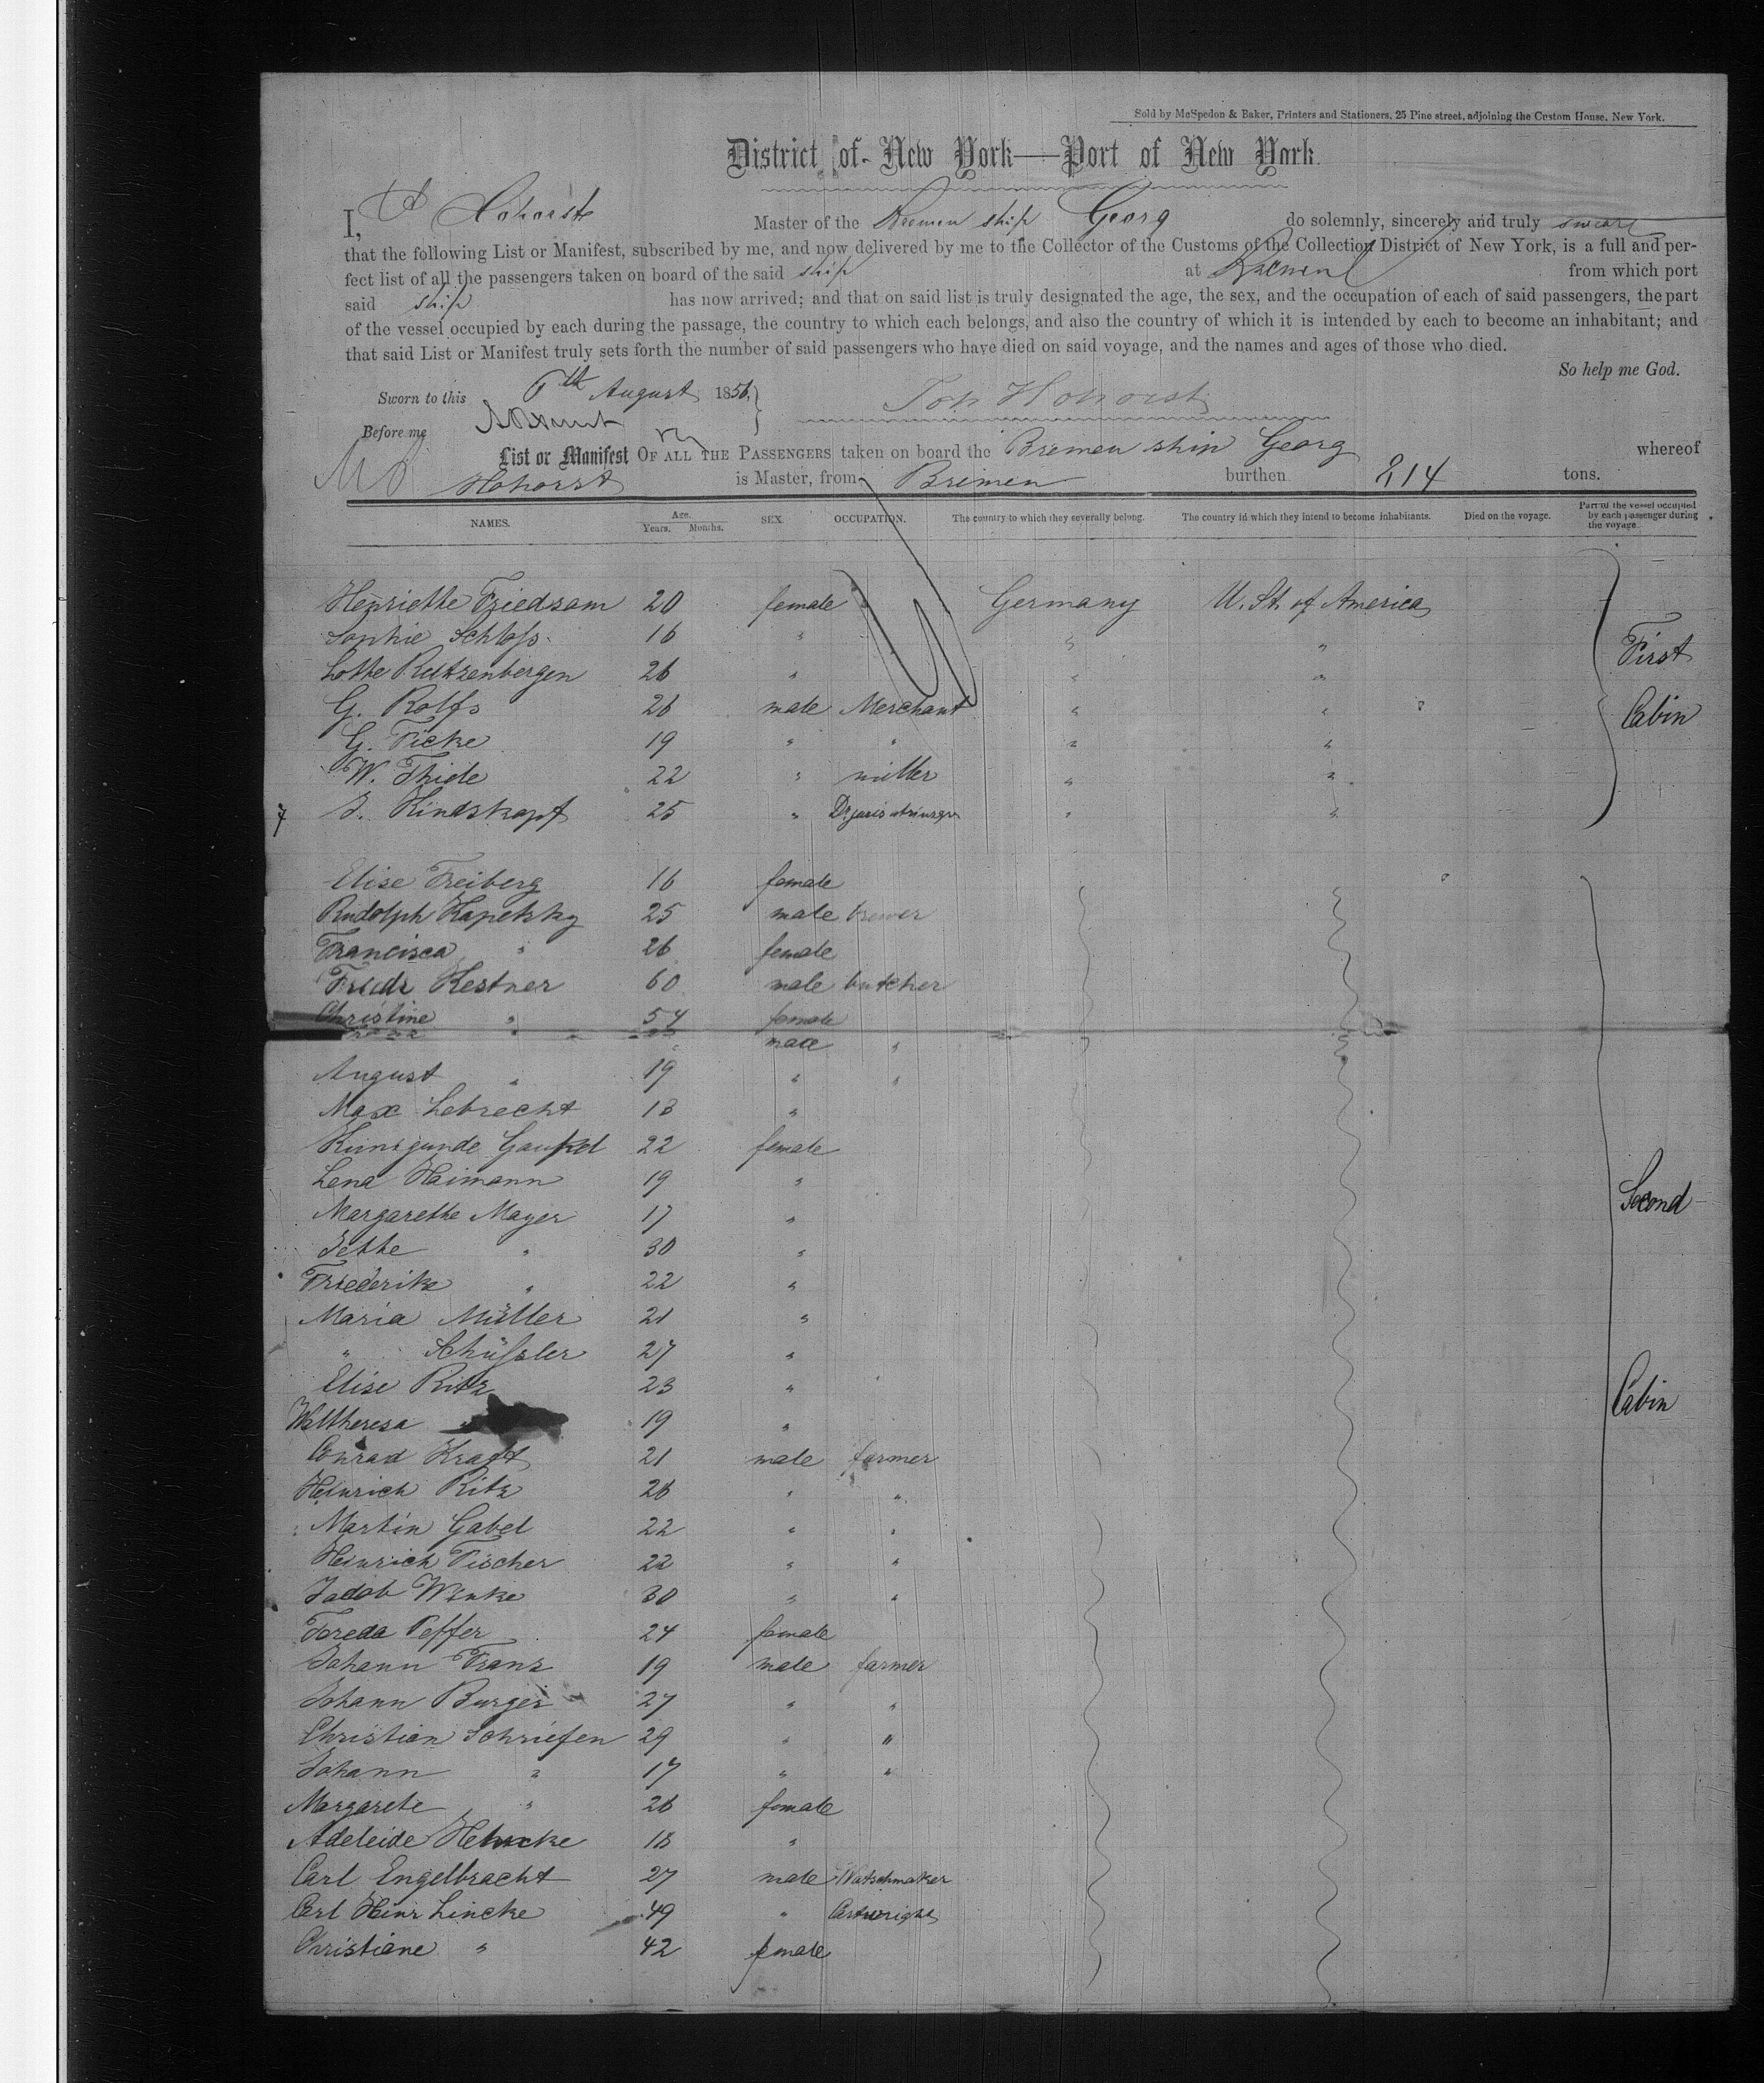 Sold by McSpedon & Baker, Printers and Stationers, 25 Pine street, adjoining the Custom House, New York.
District of New York—Port of New York.
I, Hohorst Master of the Bremen ship Georg do solemnly, sincerely and truly swear
that the following List or Manifest, subscribed by me, and now delivered by me to the Collector of the Customs of the Collection District of New York, is a full and per-
fect list of all the passengers taken on board of the said ship at Bremen from which port
said ship has now arrived; and that on said list is truly designated the age, the sex, and the occupation of each of said passengers, the part
of the vessel occupied by each during the passage, the country to which each belongs, and also the country of which it is intended by each to become an inhabitant; and
that said List or Manifest truly sets forth the number of said passengers who have died on said voyage, and the names and ages of those who died.
So help me God.
Sworn to this August 1856, Joh Hohorst
Before me
List or Manifest OF ALL THE PASSENGERS taken on board the Bremen ship Georg whereof
Hohorst is Master, from Bremen burthen 814 tons.
NAMES. Age. Years. Months. SEX. OCCUPATION. The country to which they severally belong. The country in which they intend to become inhabitants. Died on the voyage. Part of the vessel occupied by each passenger during the voyage.
Henriette Friedsam 20 female Germany U. St. of America
Sophie Schloss 16 " " "
First
Lotte Rutzenbergen 26 " " "
G. Rolfs 26 male Merchant " "
Cabin
G. Ficke 19 " " " "
W. Thiele 22 " miller " "
7 J. Hindskopf 25 " " "
Elise Freiberg 16 female
Rudolph Kapetzky 25 male brewer
Francisca " 26 female
Friedr Kestner 60 male butcher
Christine " 54 female
male "
August " 19 " "
Max Lebrecht 13 "
Kunigunde Gaukel 22 female
Lena Heimann 19 "
Second
Margarethe Mayer 17 "
Jette " 30 "
Friederike " 22 "
Maria Müller 21 "
" Schüssler 27 "
Elise Ritz 23 "
Cabin
Waltheresa 19 "
Conrad Kraft 21 male farmer
Heinrich Ritz 26 " "
Martin Gabel 22 " "
Heinrich Fischer 22 " "
Jacob Winke 30 " "
Foreda Peffer 24 female
Johann Franz 19 male farmer
Johann Burger 27 " "
Christian Schriefen 29 " "
Johann " 17 " "
Margarete " 26 female
Adeleide Heincke 18 "
Carl Engelbracht 27 male Watschmaker
Carl Heinr Lincke 49 " Cartwright
Christiane " 42 female